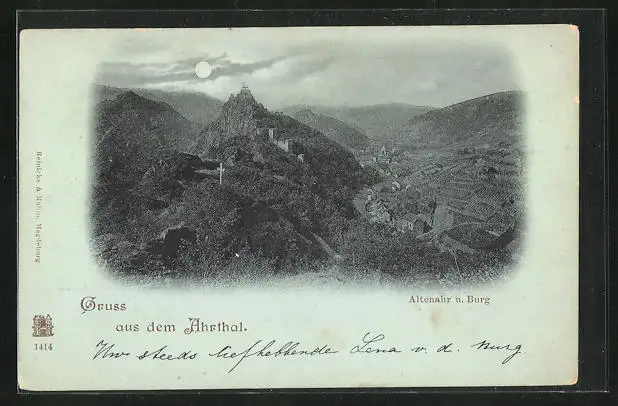 Reinicke & Rubin, Magdeburg
Altenahr u. Burg
Gruss
aus dem Ahrthal.
1414
Uw steeds liefhebbende Lena v. d. Burg